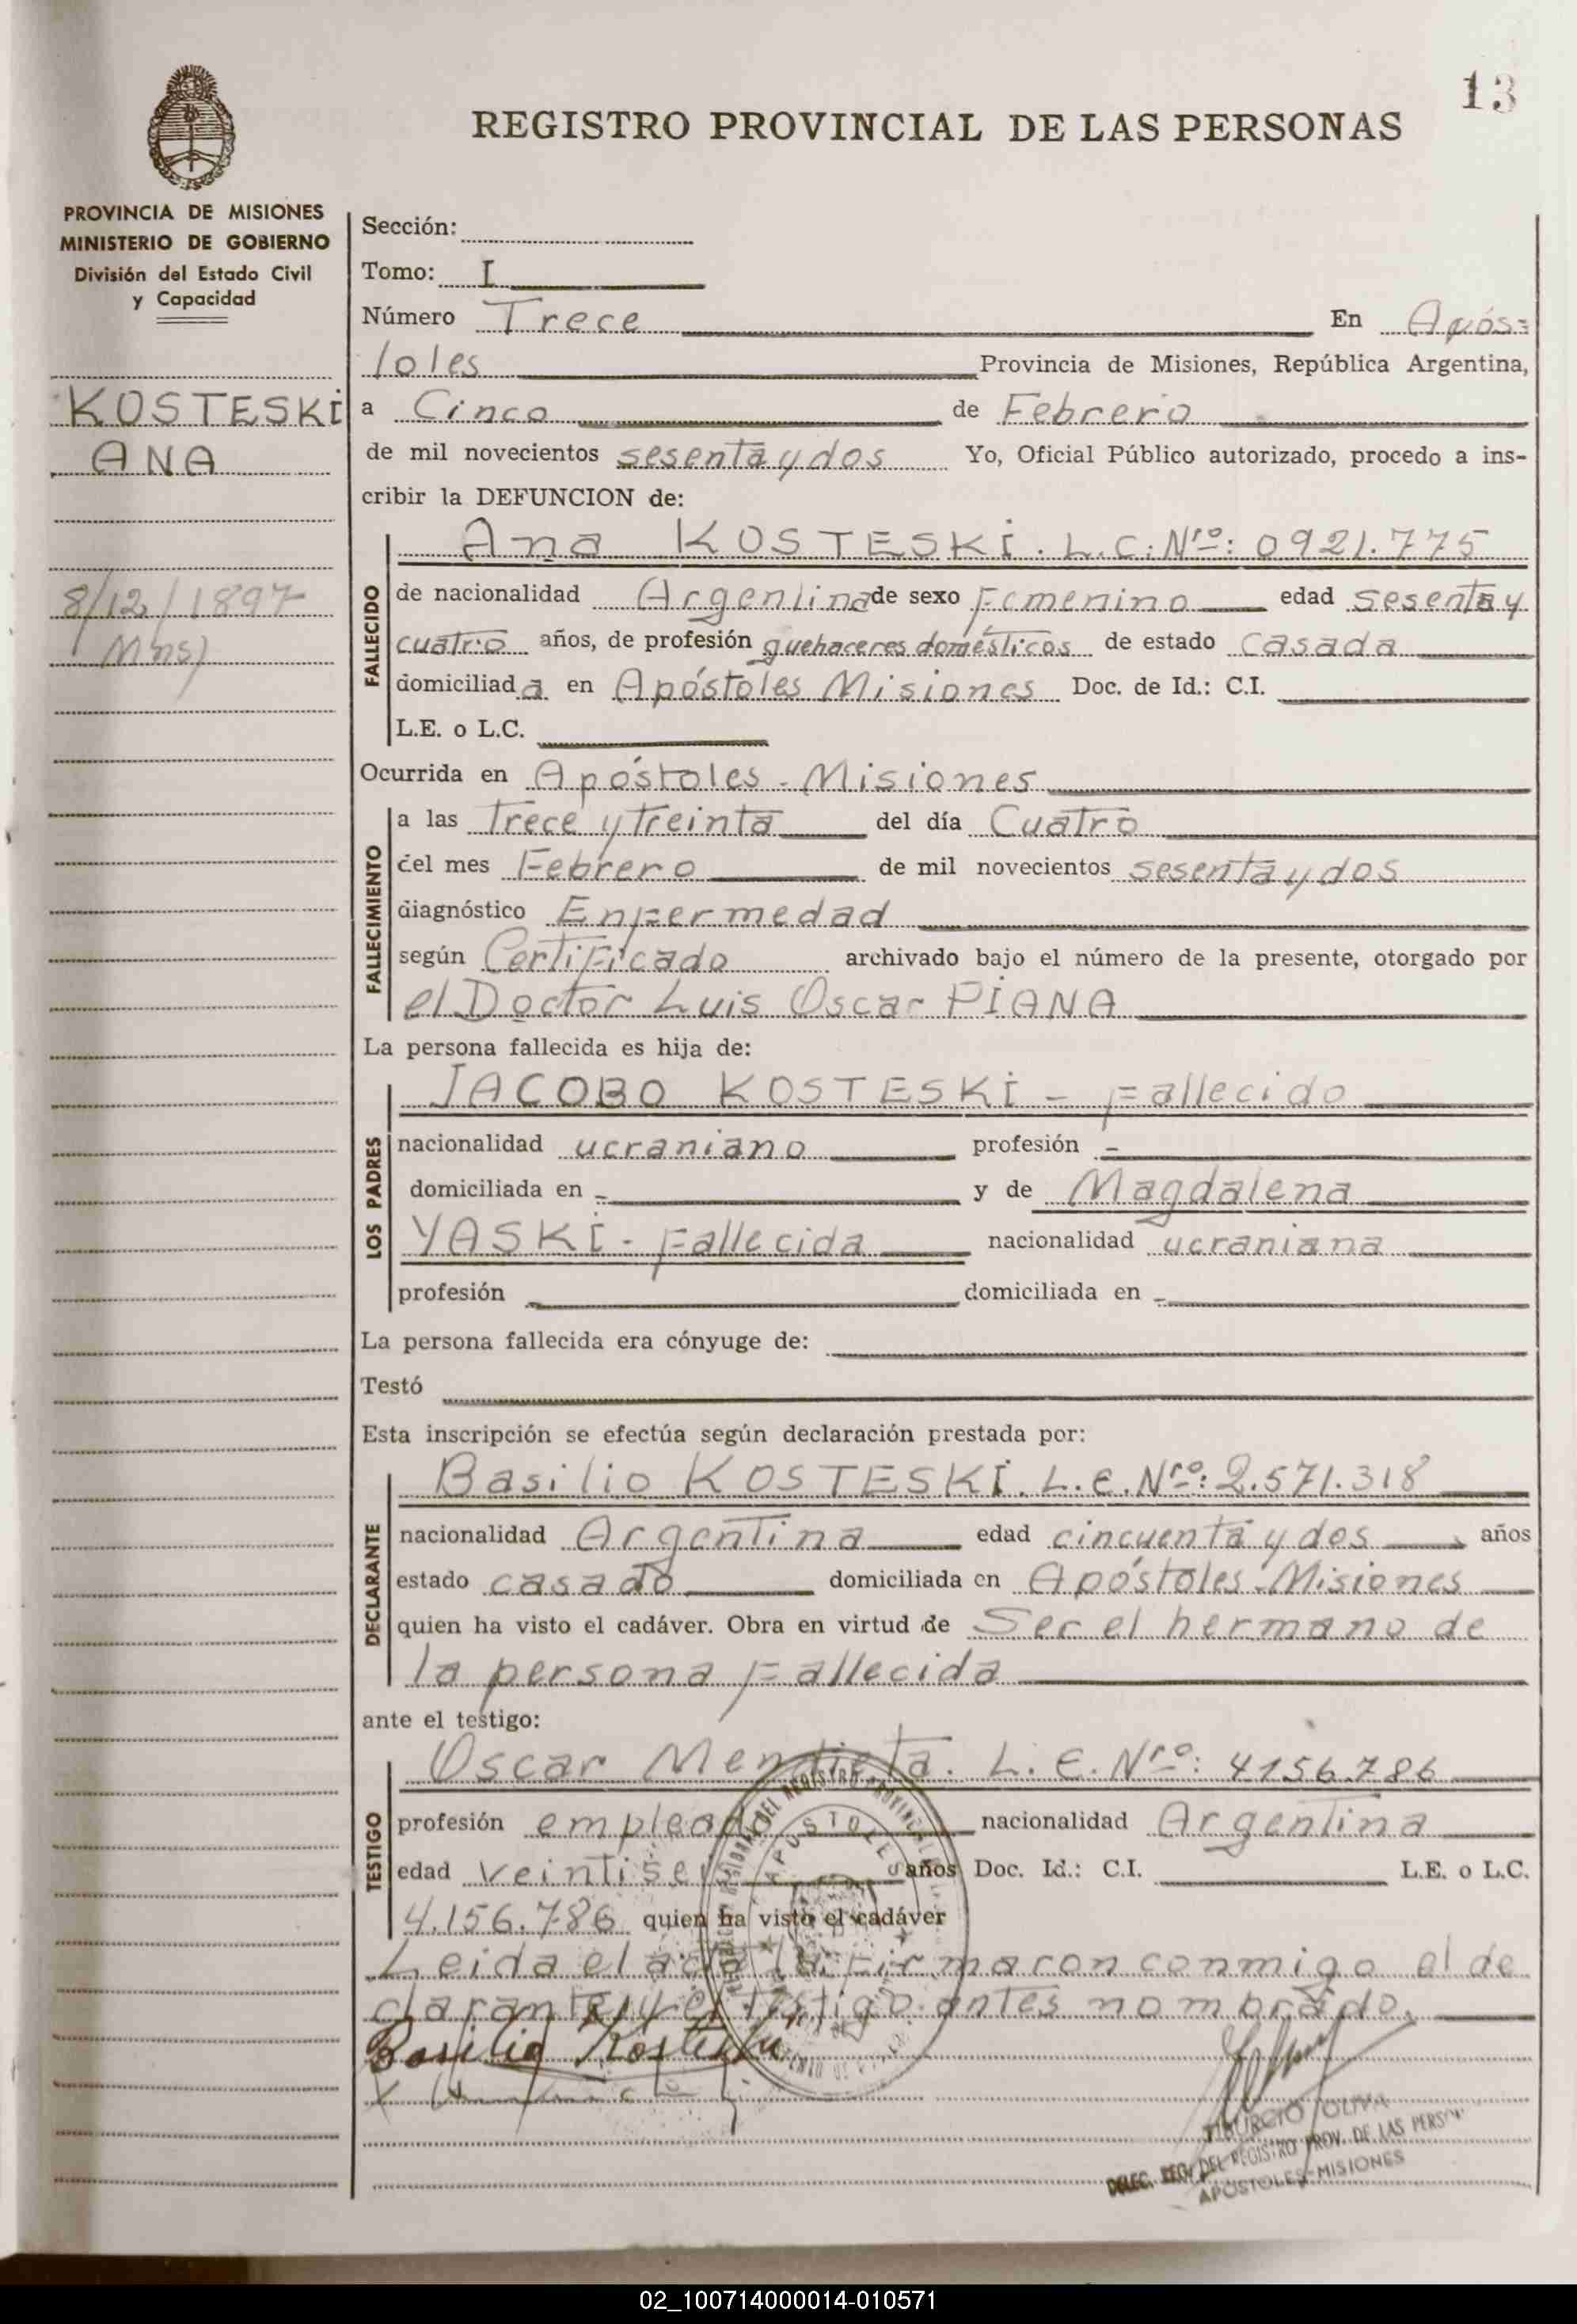 13
REGISTRO PROVINCIAL DE LAS PERSONAS
PROVINCIA DE MISIONES
MINISTERIO DE GOBIERNO
División del Estado Civil
y Capacidad
KOSTESKI
ANA
8/12/1897
Mns)
Sección:
Tomo: I
Número Trece En Após=
toles Provincia de Misiones, República Argentina,
a Cinco de Febrero
de mil novecientos sesenta y dos Yo, Oficial Público autorizado, procedo a ins-
cribir la DEFUNCION de:
Ana KOSTESKI. L.C. Nro: 0921.775
FALLECIDO
de nacionalidad Argentina de sexo Femenino edad sesenta y
cuatro años, de profesión quehaceres domésticos de estado casada
domiciliada en Apóstoles Misiones Doc. de Id.: C.I.
L.E. o L.C.
Ocurrida en Apóstoles - Misiones
FALLECIMIENTO
a las Trece y treinta del día Cuatro
del mes Febrero de mil novecientos sesenta y dos
diagnóstico Enfermedad
según Certificado archivado bajo el número de la presente, otorgado por
el Doctor Luis Oscar PIANA
La persona fallecida es hija de:
LOS PADRES
JACOBO KOSTESKI - Fallecido
nacionalidad ucraniano profesión -
domiciliada en - y de Magdalena
YASKI - Fallecida nacionalidad ucraniana
profesión domiciliada en -
La persona fallecida era cónyuge de:
Testó
Esta inscripción se efectúa según declaración prestada por:
DECLARANTE
Basilio KOSTESKI. L.E. Nro: 2.571.318
nacionalidad Argentina edad cincuenta y dos años
estado casado domiciliada en Apóstoles - Misiones
quien ha visto el cadáver. Obra en virtud de Ser el hermano de
la persona Fallecida
ante el testigo:
TESTIGO
Oscar Mendieta. L.E. Nro: 4156786
profesión empleado nacionalidad Argentina
edad veintiseis años Doc. Id.: C.I. L.E. o L.C.
4.156.786 quien ha visto el cadáver
Leida el acta la firmaron conmigo el de
clarante y el testigo antes nombrado.
Basilio Kosteski
TIBURCIO OLIVA
DELEG. REG. DEL REGISTRO PROV. DE LAS PERSON
APOSTOLES - MISIONES
02_100714000014-010571